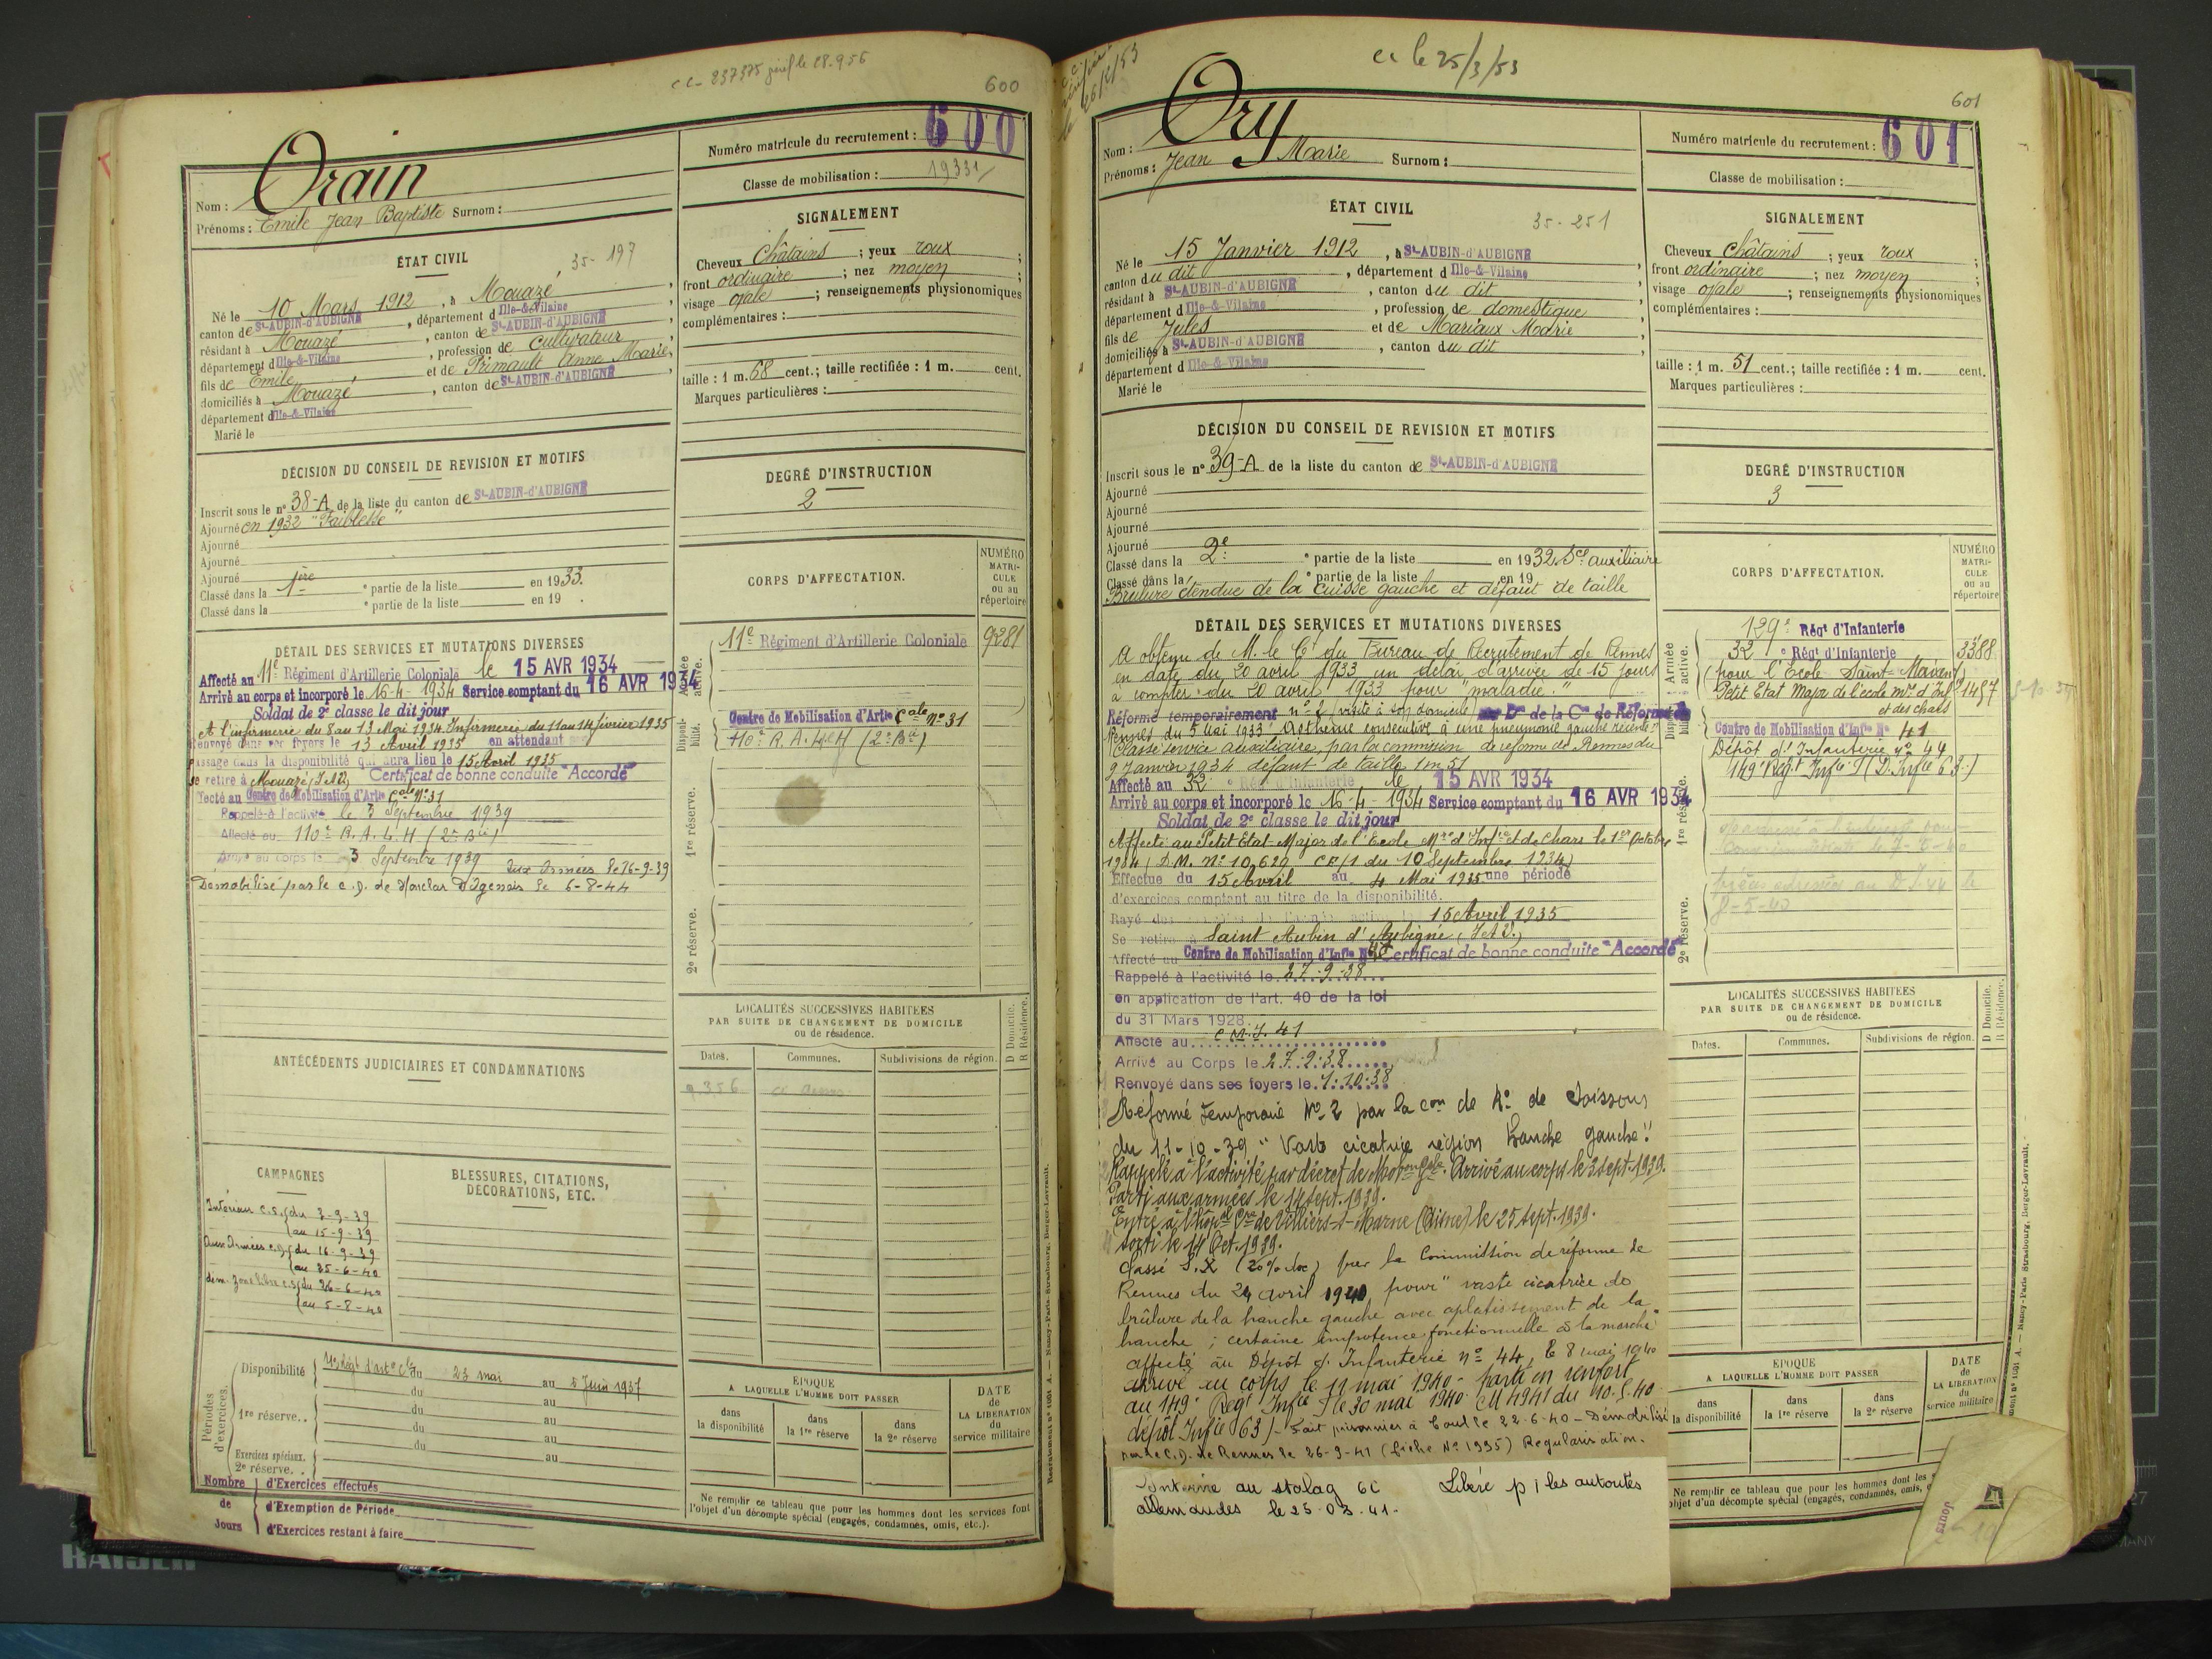 c c - 237375 le 28.9.56
600
Orain
Numéro matricule du recrutement : 600
Classe de mobilisation : 19331/
Nom :
Prénoms : Emile Jean Baptiste Surnom :
ÉTAT CIVIL
35-197
Né le 10 Mars 1912, à Mouazé,
canton de St-AUBIN-d'AUBIGNÉ, département d Ille-&-Vilaine,
résidant à Mouazé, canton de St-AUBIN-d'AUBIGNÉ,
département d Ille-&-Vilaine, profession de cultivateur,
fils de Emile et de Primault Anne Marie,
domiciliés à Mouazé, canton de St-AUBIN-d'AUBIGNÉ,
département d Ille-&-Vilaine
Marié le
SIGNALEMENT
Cheveux châtains ; yeux roux ;
front ordinaire ; nez moyen ;
visage ovale ; renseignements physionomiques
complémentaires :
taille : 1 m. 68 cent.; taille rectifiée : 1 m. cent.
Marques particulières :
DÉCISION DU CONSEIL DE REVISION ET MOTIFS
Inscrit sous le n° 38-A de la liste du canton de St-AUBIN-d'AUBIGNÉ
Ajourné en 1932 "Faiblesse"
Ajourné
Ajourné
Ajourné
Classé dans la 1ère e partie de la liste en 1933.
Classé dans la e partie de la liste en 19 .
DEGRÉ D'INSTRUCTION
2
DÉTAIL DES SERVICES ET MUTATIONS DIVERSES
Affecté au 11e Régiment d'Artillerie Coloniale le 15 AVR 1934
Arrivé au corps et incorporé le 16-4-1934 Service comptant du 16 AVR 1934
Soldat de 2e classe le dit jour
A l'infirmerie du 8 au 13 Mai 1934. Infirmerie du 11 au 14 février 1935
Renvoyé dans ses foyers le 13 Avril 1935 en attendant
passage dans la disponibilité qui aura lieu le 15 Avril 1935
se retire à Mouazé (I&V) Certificat de bonne conduite "Accordé"
fecté au Centre de Mobilisation d'Artie Cale N° 31
Rappelé à l'activité le 3 Septembre 1939
Affecté au 110e R.A.L.H (2e Bie)
Arrivé au corps le 3 Septembre 1939 Aux Armées le 16-9-39
Démobilisé par le c.d. de Monclar D'Agenais le 6-8-44
CORPS D'AFFECTATION.
NUMÉRO MATRI-CULE ou au répertoire
Armée active.
11e Régiment d'Artillerie Coloniale 9281
Disponi-bilité.
Centre de Mobilisation d'Artie Cale N° 31
110e R.A.L.H (2e Bie)
1re réserve.
2e réserve.
LOCALITÉS SUCCESSIVES HABITÉES
PAR SUITE DE CHANGEMENT DE DOMICILE
ou de résidence.
Dates. Communes. Subdivisions de région. D Domicile. R Résidence.
ANTÉCÉDENTS JUDICIAIRES ET CONDAMNATIONS
CAMPAGNES
Intérieur c.s. (du 3-9-39
(au 15-9-39
Aux Armées c.d. (du 16-9-39
(au 25-6-40
dém. zone libre c.s (du 26-6-40
(au 5-8-40
BLESSURES, CITATIONS,
DÉCORATIONS, ETC.
Périodes d'exercices.
Disponibilité du 23 mai au 5 Juin 1937
du au
1re réserve.. du au
du au
Exercices spéciaux.
2e réserve. . du au
Nombre de Jours
d'Exercices effectués
d'Exemption de Période
d'Exercices restant à faire
ÉPOQUE
A LAQUELLE L'HOMME DOIT PASSER
dans la disponibilité
dans la 1re réserve
dans la 2e réserve
DATE de LA LIBÉRATION du service militaire
Ne remplir ce tableau que pour les hommes dont les services font
l'objet d'un décompte spécial (engagés, condamnés, omis, etc.).
Recrutement n° 1/601 A. — Nancy-Paris-Strasbourg, Berger-Levrault.
cc le 25/3/53
601
Ory
Nom :
Prénoms : Jean Marie Surnom :
Numéro matricule du recrutement : 601
Classe de mobilisation :
ÉTAT CIVIL
35-251
Né le 15 Janvier 1912, à St-AUBIN-d'AUBIGNÉ
canton du dit, département d Ille-&-Vilaine,
résidant à St-AUBIN-d'AUBIGNÉ, canton du dit,
département d Ille-&-Vilaine, profession de domestique,
fils de Jules et de Mariaux Marie,
domiciliés à St-AUBIN-d'AUBIGNÉ, canton du dit,
département d Ille-&-Vilaine
Marié le
SIGNALEMENT
Cheveux châtains ; yeux roux ;
front ordinaire ; nez moyen ;
visage ovale ; renseignements physionomiques
complémentaires :
taille : 1 m. 51 cent.; taille rectifiée : 1 m. cent.
Marques particulières :
DÉCISION DU CONSEIL DE REVISION ET MOTIFS
Inscrit sous le n° 39-A de la liste du canton de St-AUBIN-d'AUBIGNÉ
Ajourné
Ajourné
Ajourné
Ajourné
Classé dans la 2e e partie de la liste en 1932 Sce auxiliaire
Classé dans la e partie de la liste en 19
Brûlure étendue de la cuisse gauche et défaut de taille
DEGRÉ D'INSTRUCTION
3
DÉTAIL DES SERVICES ET MUTATIONS DIVERSES
A obtenu de M. le Ct du Bureau de Recrutement de Rennes
en date du 20 avril 1933 un délai d'arrivée de 15 jours
à compter du 20 avril 1933 pour "maladie."
Réformé temporairement n° 2 (visité à son domicile) de la Con de Réforme de
Rennes du 5 Mai 1933 Asthénie consécutive à une pneumonie gauche récente"
Classé service auxiliaire par la commission de réforme de Rennes du
9 Janvier 1934 défaut de taille 1m51
Affecté au 32 Régt d'Infanterie le 15 AVR 1934
Arrivé au corps et incorporé le 16-4-1934 Service comptant du 16 AVR 1934
Soldat de 2e classe le dit jour
Affecté au Petit Etat Major de l'Ecole Mre d'Infie et de chars le 1er Octobre
1934 (D.M. N° 10.629 CP/1 du 10 Septembre 1934)
Effectue du 15 Avril au 4 Mai 1935 une période
d'exercices comptant au titre de la disponibilité.
Rayé des 15 Avril 1935
Se retire à Saint Aubin d'Aubigné (I&V.)
Affecté au Centre de Mobilisation d'Infie N° Certificat de bonne conduite "Accordé"
Rappelé à l'activité le 27.9.38
en application de l'art. 40 de la loi
du 31 Mars 1928
Affecté au C.M.I. 41
Arrivé au Corps le 27.9.38
Renvoyé dans ses foyers le 7.10.38
Réformé temporaire N° 2 par la con de Re de Soissons
du 11-10-39 "Vaste cicatrice région hanche gauche"
Rappelé à l'activité par décret de Mobon Gale. Arrivé au corps le 3 sept. 1939.
Parti aux armées le 14 sept. 1939.
Entré à l'hôpal Cre de Villiers-s-Marne (Aisne) le 25 sept. 1939.
sorti le 14 Oct. 1939.
Classé S.X (20% doc) par la Commission de réforme de
Rennes du 24 avril 1940 pour "vaste cicatrice de
brûlure de la hanche gauche avec aplatissement de la
hanche ; certaine impotence fonctionnelle à la marche"
affecté au Dépôt d'Infanterie n° 44, le 8 mai 1940
arrivé au corps le 11 mai 1940 - parti en renfort
au 149e Régt Infie F le 30 mai 1940. CM 4941 du 10.5.40
dépôt Infie 63) - Fait prisonnier à Toul le 22-6-40 - Démobilisé
par le C.D. de Rennes le 26-9-41 (fiche N° 1935) Régularisation.
Interné au stalag 6C Libéré p i les autorités
allemandes le 25-03-41.
CORPS D'AFFECTATION.
NUMÉRO MATRI-CULE ou au répertoire
Armée active.
129e Régt d'Infanterie
32 e Régt d'Infanterie 3388
(pour l'Ecole Saint-Maixent)
Petit Etat Major de l'école mre d'Infie et des chars 1457
Centre de Mobilisation d'Infie N° 41
Dépôt d'Infanterie n° 44
149e Régt Infie F (D. Infie 63)
1re réserve.
2e réserve.
8-5-40
LOCALITÉS SUCCESSIVES HABITÉES
PAR SUITE DE CHANGEMENT DE DOMICILE
ou de résidence.
Dates. Communes. Subdivisions de région. D Domicile. R Résidence.
ÉPOQUE
A LAQUELLE L'HOMME DOIT PASSER
dans la disponibilité
dans la 1re réserve
dans la 2e réserve
DATE de LA LIBÉRATION du service militaire
Ne remplir ce tableau que pour les hommes dont les
objet d'un décompte spécial (engagés, condamnés, omis,
Jours
Nancy-Paris-Strasbourg, Berger-Levrault.